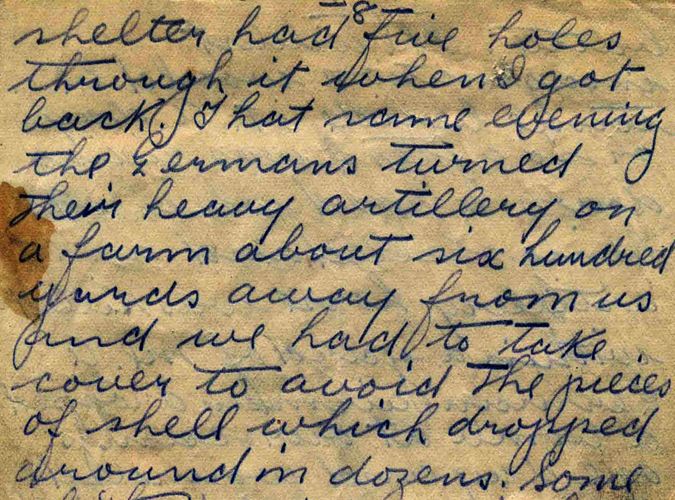 8
shelter had five holes
through it when I got
back. That same evening
the Germans turned
their heavy artillery on
a farm about six hundred
yards away from us
and we had to take
cover to avoid the pieces
of shell which dropped
around in dozens. Some